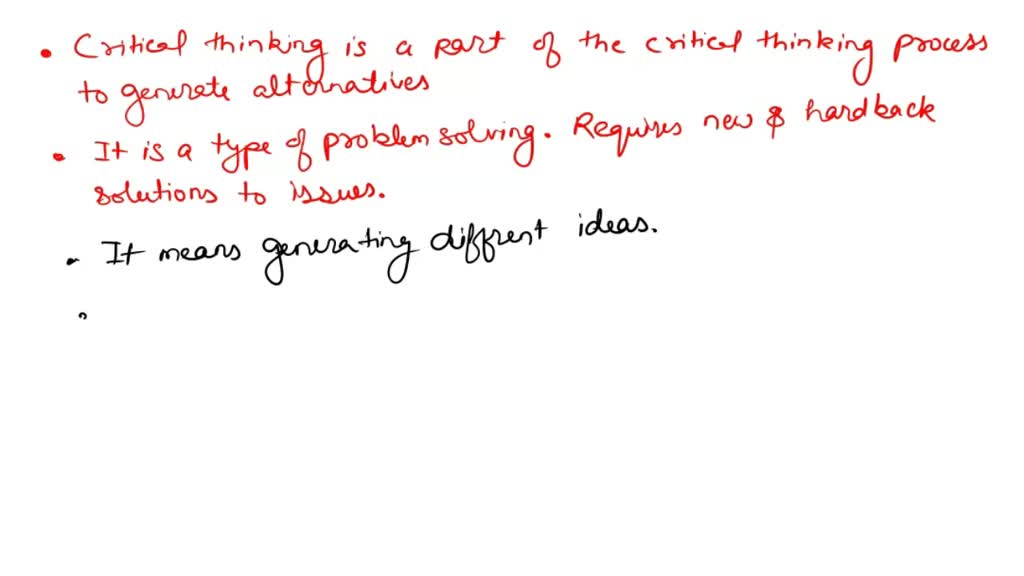 • Critical thinking is a part of the critical thinking process
to generate alternatives
• It is a type of problem solving. Requires new & hardback
solutions to issues.
• It means generating diffrent ideas.